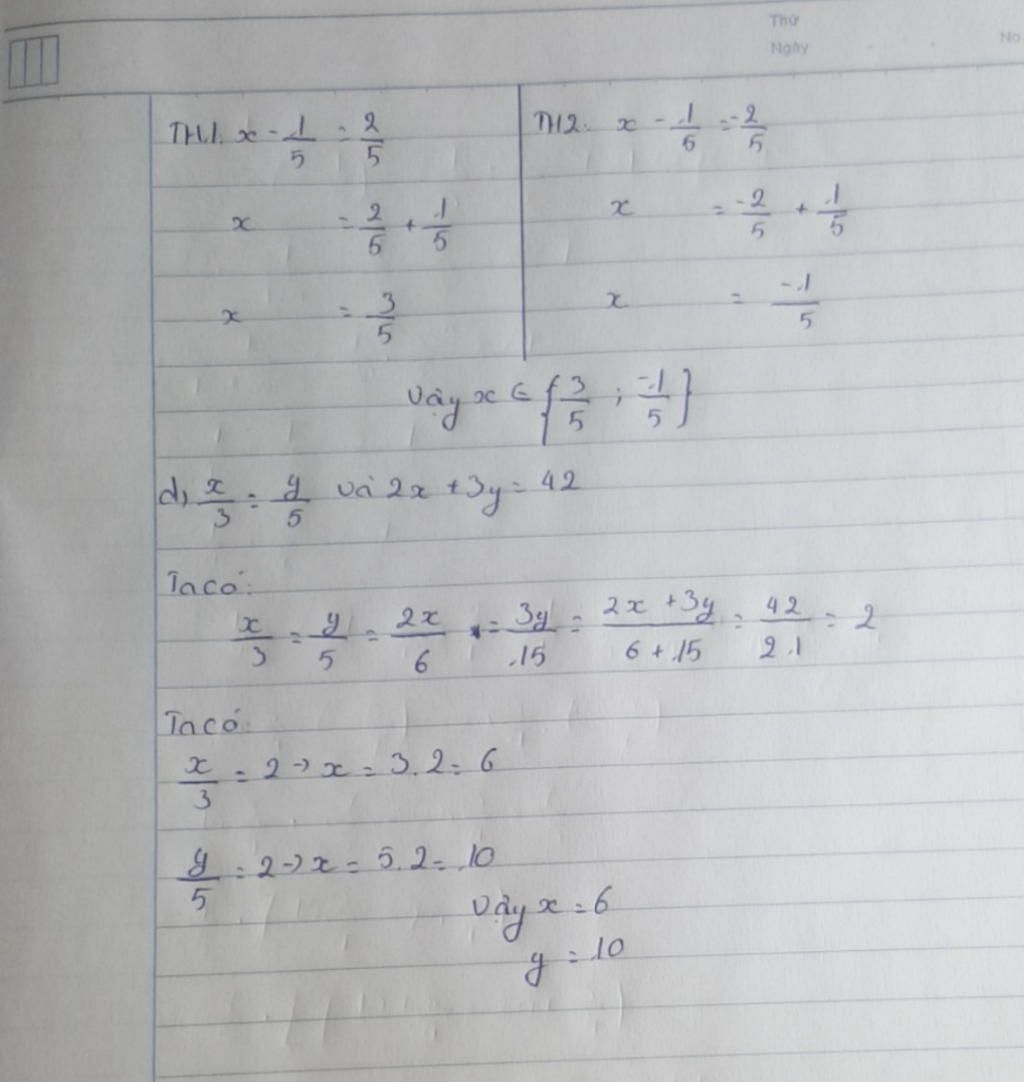 Thứ
Ngày
No
TH1: x - 1/5 = 2/5
x = 2/5 + 1/5
x = 3/5
TH2: x - 1/5 = -2/5
x = -2/5 + 1/5
x = -1/5
Vậy x ∈ {3/5 ; -1/5}
d, x/3 = y/5 và 2x + 3y = 42
Ta có:
x/3 = y/5 = 2x/6 = 3y/15 = (2x + 3y)/(6 + 15) = 42/21 = 2
Ta có:
x/3 = 2 → x = 3.2 = 6
y/5 = 2 → x = 5.2 = 10
Vậy x = 6
y = 10